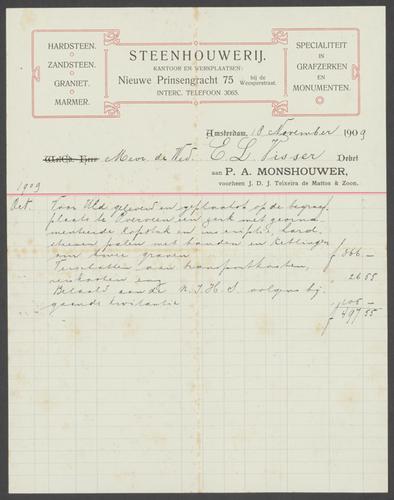 HARDSTEEN.
ZANDSTEEN.
GRANIET.
MARMER.
STEENHOUWERIJ.
KANTOOR EN WERKPLAATSEN:
Nieuwe Prinsengracht 75 bij de Weesperstraat.
INTERC. TELEFOON 3065.
SPECIALITEIT
IN
GRAFZERKEN
EN
MONUMENTEN.
Amsterdam, 18 November 1909
WelEd. Heer Mevr. de Wed. E L Visser Debet
aan P. A. MONSHOUWER,
voorheen J. D. J. Teixeira de Mattos & Zoon.
1909
Oct. Voor UEd geleverd en geplaatst op de begraaf
plaats te Overveen een zerk met georna
menteerde kopstuk en inscriptie, hard
steenen palen met banden en kettingen
om twee graven f 366 —
Verschotten aan transportkosten,
reiskosten enz 26.55
Betaald aan de N. I. H. S. volgens bij
gaande kwitantie 105 —
f 497.55